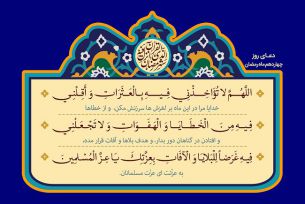 دعای روز
چهاردهم ماه رمضان
اللّهُمَّ لاتُؤاخِذنی فیهِ بِالعَثَراتِ وَ أَقِلنی
خدایا مرا در این ماه بر لغزش ها سرزنش مکن، و از خطاها
فیهِ مِنَ الخَطایا وَ الهَفَواتِ وَ لاتَجعَلنی
و افتادن در گناهان دور بدار، و هدف بلاها و آفات قرار مده،
فیهِ غَرَضاً لِلبَلایا وَ الآفاتِ بِعِزَّتِکَ یا عِزَّ المُسلِمین
به عزتت ای عزت مسلمانان.